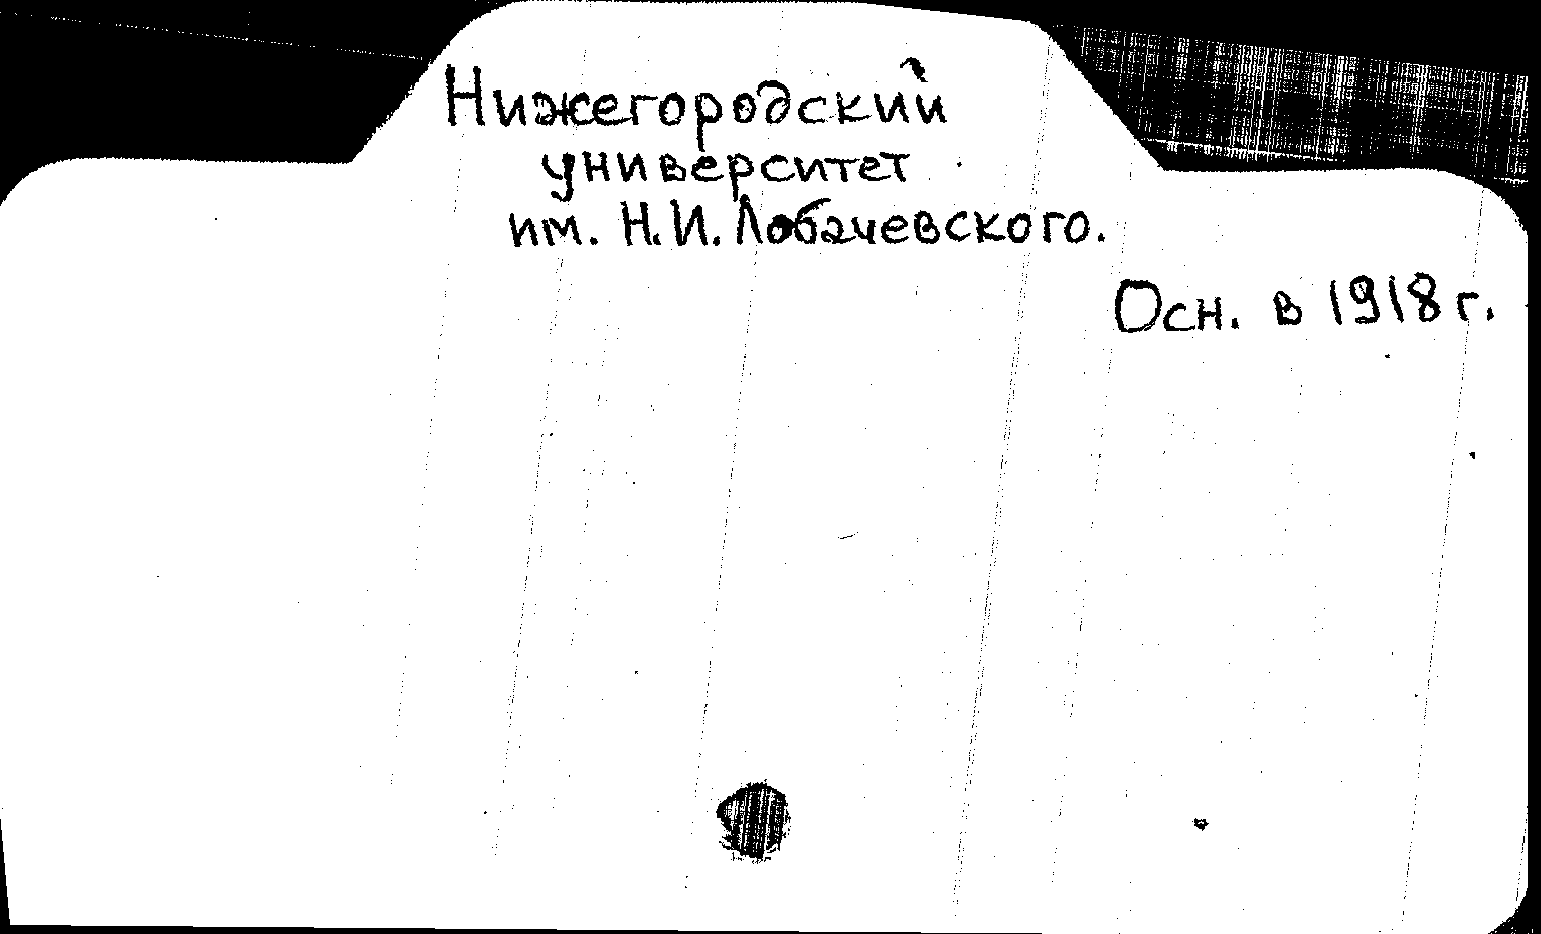 Нижегородский
университет
им. Н.И. Лобачевского.
Осн. в 1918 г.